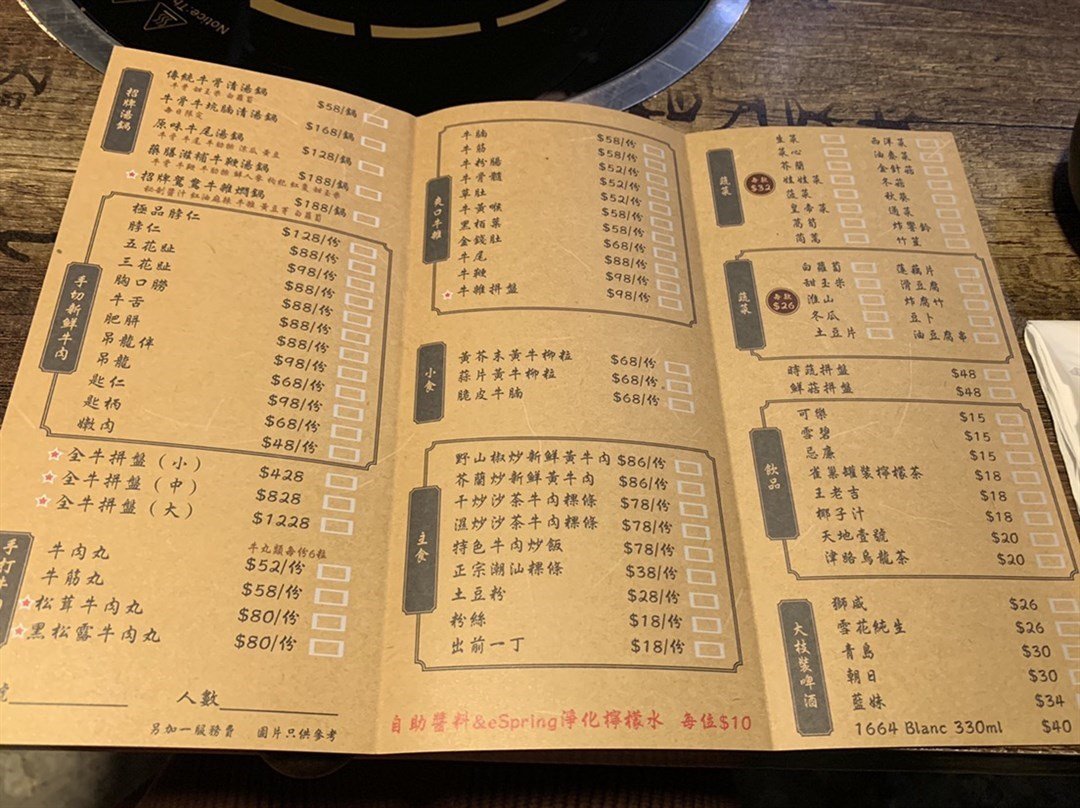 Notice: Th
招牌湯鍋
傳統牛骨清湯鍋 $58/鍋
牛骨 甜玉米 白蘿蔔
牛骨牛坑腩清湯鍋 $168/鍋
每日限定
原味牛尾湯鍋 $128/鍋
藥膳滋補牛鞭湯鍋 $188/鍋
招牌鴛鴦牛雜燜鍋 $188/鍋
手切新鮮牛肉
極品脖仁 $128/份
脖仁 $88/份
五花趾 $98/份
三花趾 $88/份
胸口朥 $88/份
牛舌 $88/份
肥胼 $88/份
吊龍伴 $98/份
吊龍 $68/份
匙仁 $98/份
匙柄 $68/份
嫩肉 $48/份
全牛拼盤（小） $428
全牛拼盤（中） $828
全牛拼盤（大） $1228
手打牛
牛丸類每份6粒
牛肉丸 $52/份
牛筋丸 $58/份
松茸牛肉丸 $80/份
黑松露牛肉丸 $80/份
號
人數
另加一服務費 圖片只供參考
爽口牛雜
牛腩 $58/份
牛筋 $58/份
牛粉腸 $52/份
牛骨髓 $52/份
草肚 $52/份
牛黃喉 $58/份
黑栢葉 $58/份
金錢肚 $68/份
牛尾 $88/份
牛鞭 $98/份
牛雜拼盤 $98/份
小食
黃芥末黃牛柳粒 $68/份
蒜片黃牛柳粒 $68/份
脆皮牛腩 $68/份
主食
野山椒炒新鮮黃牛肉 $86/份
芥蘭炒新鮮黃牛肉 $86/份
干炒沙茶牛肉粿條 $78/份
濕炒沙茶牛肉粿條 $78/份
特色牛肉炒飯 $78/份
正宗潮汕粿條 $38/份
土豆粉 $28/份
粉絲 $18/份
出前一丁 $18/份
自助醬料&eSpring淨化檸檬水 每位$10
蔬菜
每款
$32
生菜 西洋菜
菜心 油麥菜
芥蘭 金針菇
娃娃菜 冬菇
菠菜 秋葵
皇帝菜 通菜
萵筍 炸響鈴
茼蒿 竹笙
蔬菜
每款
$26
白蘿蔔 蓮藕片
甜玉米 滑豆腐
淮山 炸腐竹
冬瓜 豆卜
土豆片 油豆腐串
時蔬拼盤 $48
鮮菇拼盤 $48
飲品
可樂 $15
雪碧 $15
忌廉 $15
雀巢罐裝檸檬茶 $18
王老吉 $18
椰子汁 $18
天地壹號 $20
津路烏龍茶 $20
大枝裝啤酒
獅威 $26
雪花純生 $26
青島 $30
朝日 $30
藍妹 $34
1664 Blanc 330ml $40